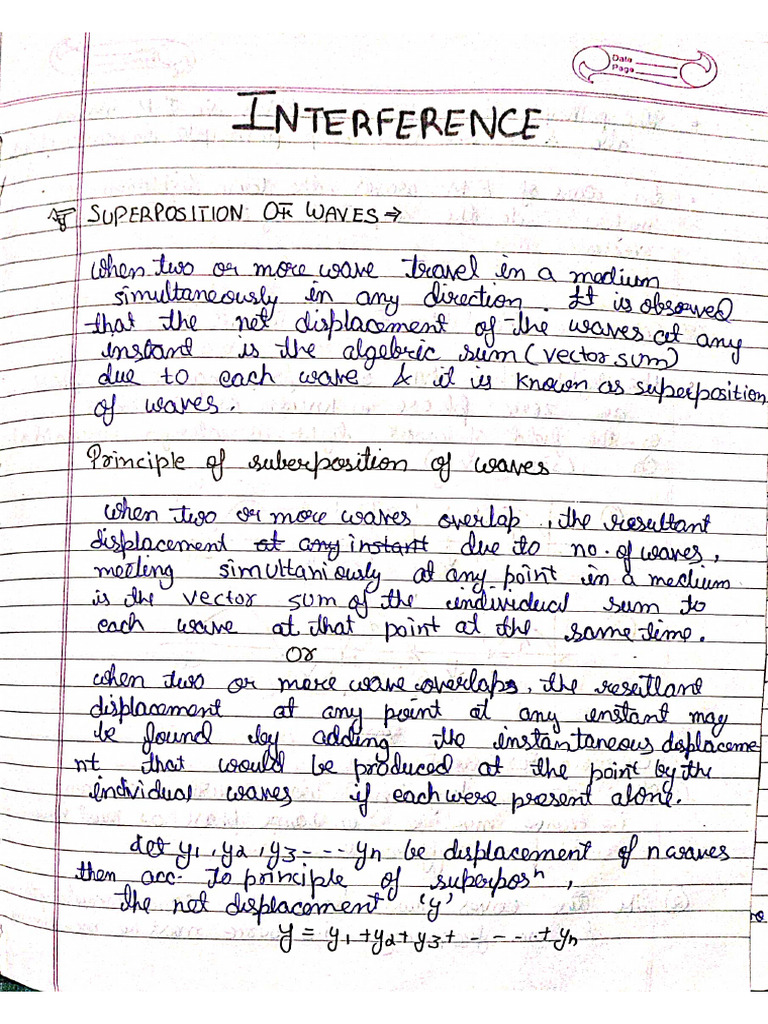 Date
Page
INTERFERENCE
SUPERPOSITION OF WAVES →
When two or more wave travel in a medium
simultaneously in any direction. It is observed
that the net displacement of the waves at any
instant is the algebric sum (vector sum)
due to each wave & it is known as superposition
of waves.
Principle of suberposition of waves
When two or more waves overlap, the resultant
displacement at any instant due to no. of waves,
meeting simultaniously at any point in a medium
is the vector sum of the individual sum to
each wave at that point at the same time.
Or
When two or more wave overlaps, the resultant
displacement at any point at any instant may
be found by adding the instantaneous displaceme
nt that would be produced at the point by the
individual waves if each were present alone.
Let y1, y2, y3 - - - yn be displacement of n waves
then acc. to principle of superposⁿ,
the net displacement 'y'
y = y1 + y2 + y3 + - - - - + yn